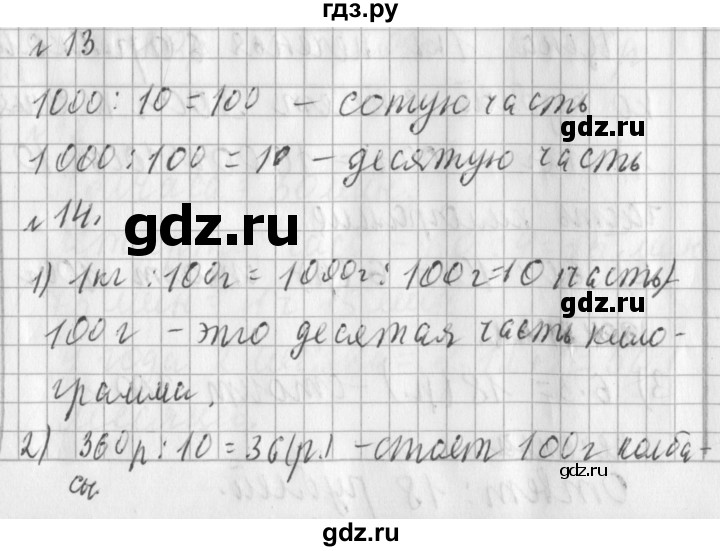 гдз.ру
№ 13
1000 : 10 = 100 – сотую часть
gdz.ru
1000 : 100 = 10 – десятую часть
№ 14.
gdz.ru
gdz.ru
1) 1кг : 100г = 1000г : 100г = 10 (часть)
gdz.ru
100 г – это десятая часть кило-
грамма.
2) 360р : 10 = 36(р.) – стоят 100г колба-
сы.
gdz.ru
gdz.ru